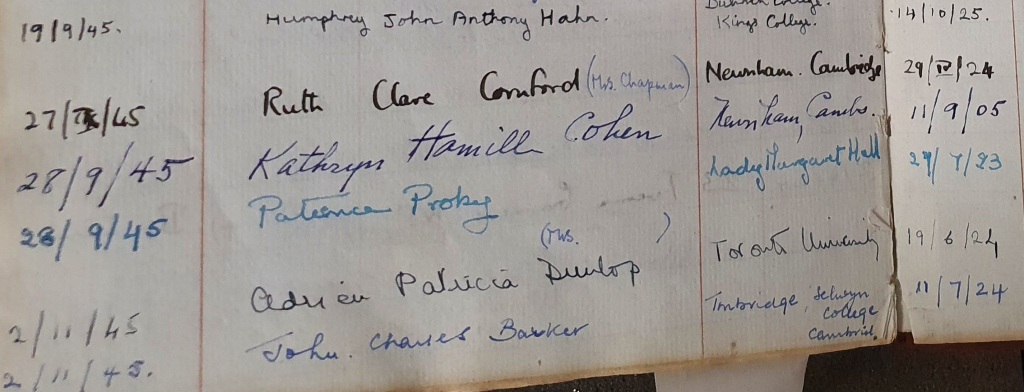 19/9/45. Humphrey John Anthony Hahn. Kings College. 14/10/25.
27/IX/45 Ruth Clare Cornford (Mrs. Chapman) Newnham. Cambridge 29/IV/24
28/9/45 Kathryn Hamill Cohen Newnham, Cambs. 11/9/05
28/9/45 Patience Proby Lady Margaret Hall 29/7/23
(Mrs. )
2/11/45 Adrien Patricia Dunlop Toronto University 19/6/24
2/11/45. John. Charles Barker Tonbridge, Selwyn 11/7/24
college
Cambrid.